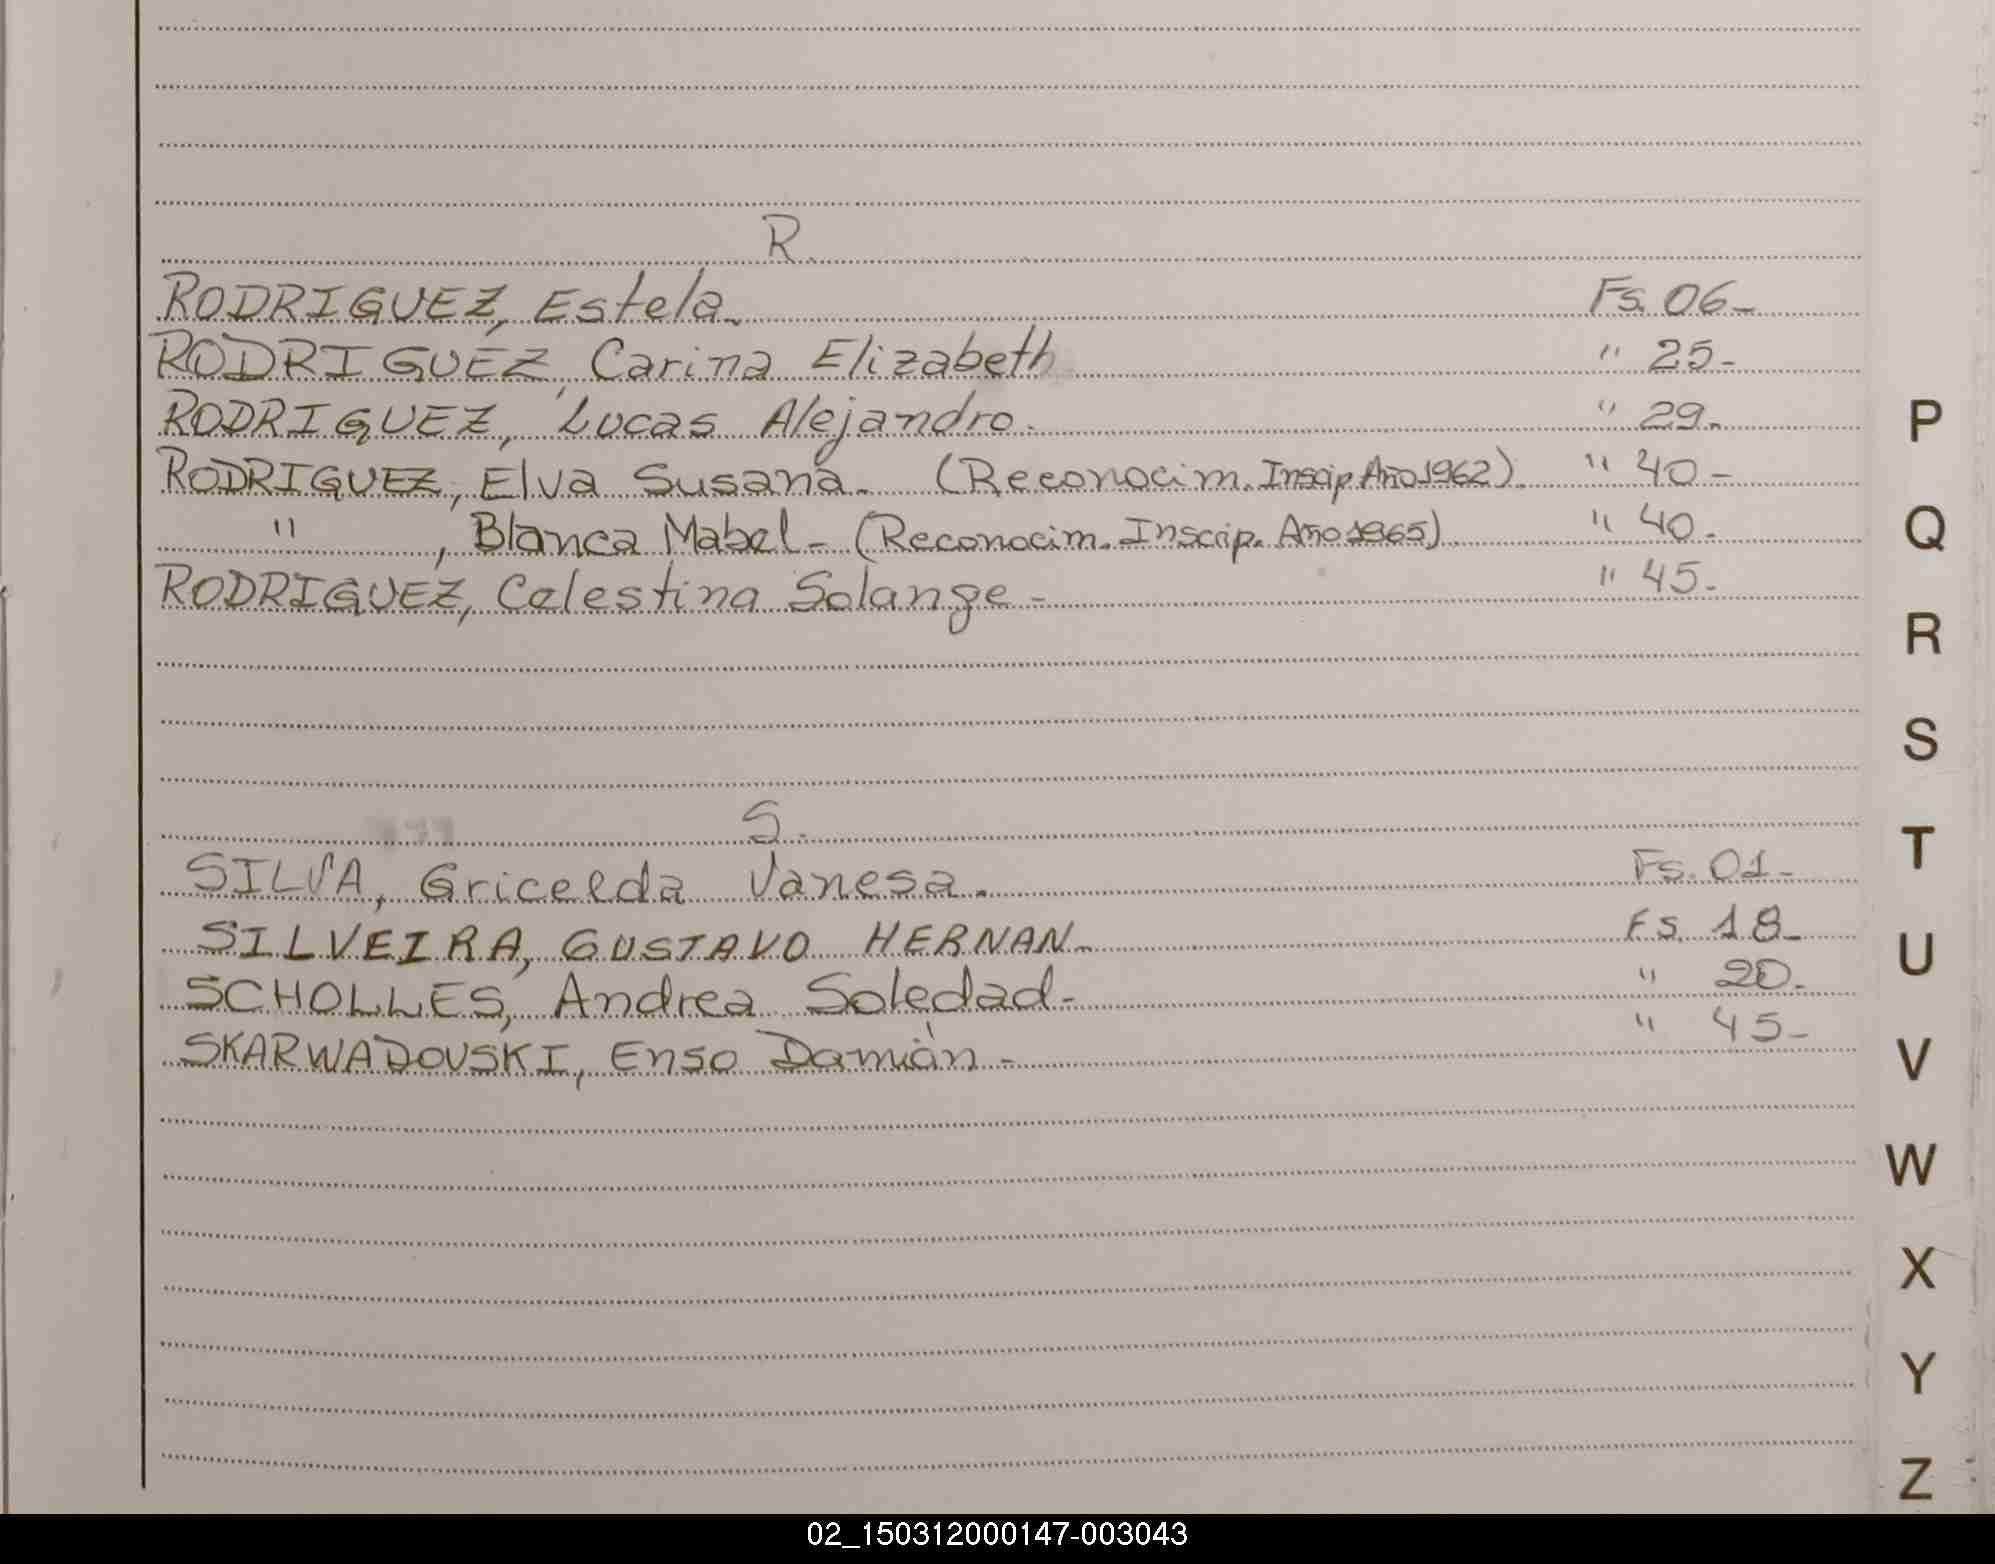 R.
RODRIGUEZ, Estela. Fs. 06-
RODRIGUEZ, Carina Elizabeth " 25-
RODRIGUEZ, Lucas Alejandro. " 29.
RODRIGUEZ, Elva Susana. (Reconocim. Inscip. Año 1962). " 40-
" , Blanca Mabel- (Reconocim. Inscrip. Año 1965) " 40.
RODRIGUEZ, Celestina Solange- " 45-
S.
SILVA, Gricelda Vanesa. Fs. 01-
SILVEIRA, GUSTAVO HERNAN- FS. 18-
SCHOLLES, Andrea Soledad- " 20.
SKARWADOVSKI, Enso Damián- " 45-
P
Q
R
S
T
U
V
W
X
Y
Z
02_150312000147-003043